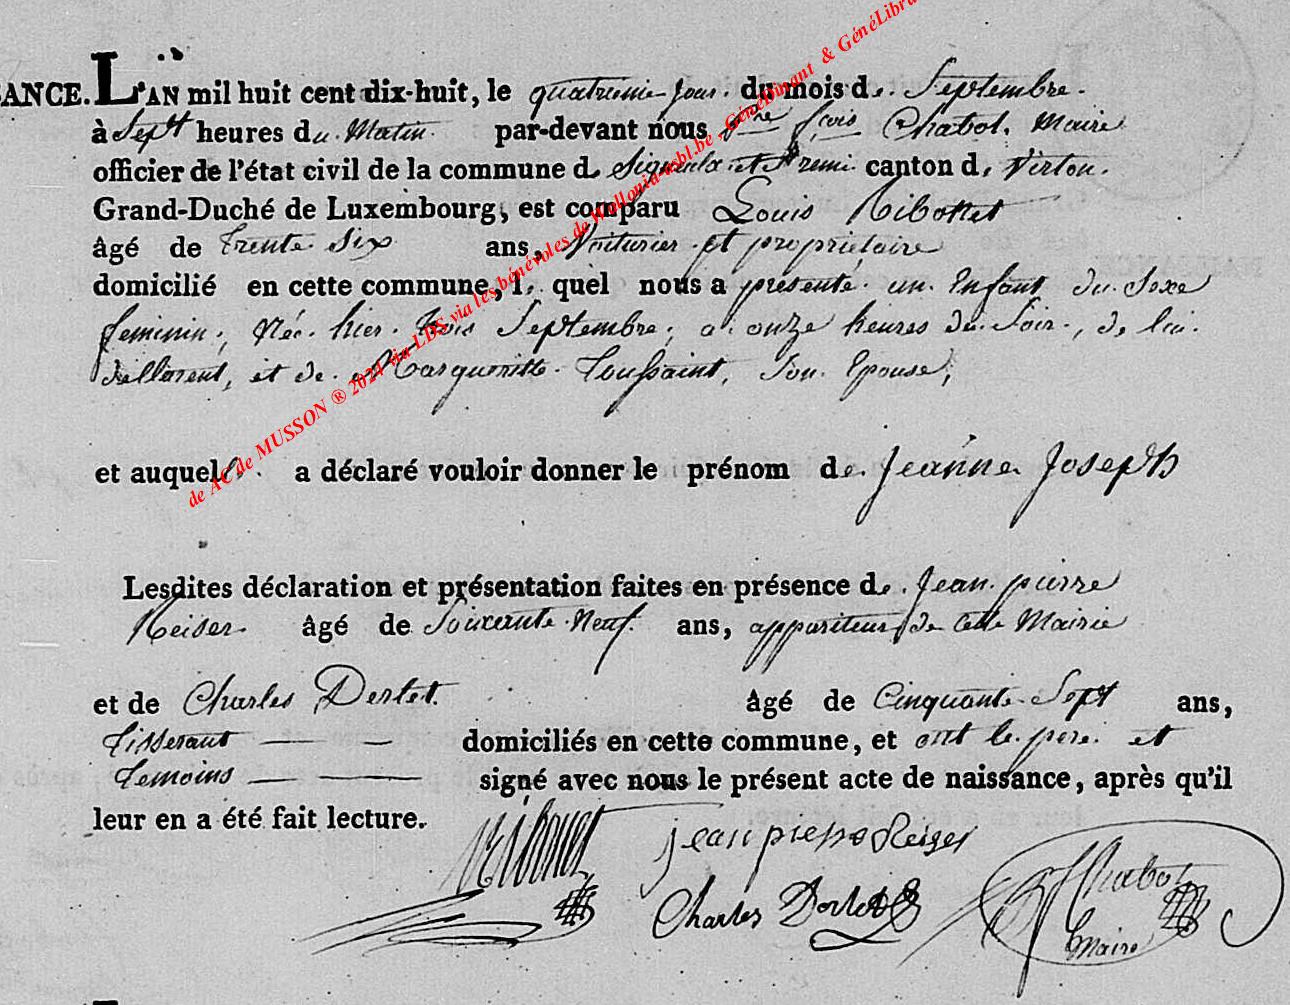 ANCE. L'AN mil huit cent dix-huit, le quatrieme jour du mois de Septembre
à Sept heures du Matin par-devant nous fçois Chabot, Maire
officier de l'état civil de la commune de Signeulx et canton de Virton.
Grand-Duché de Luxembourg, est comparu Louis Ribonet
âgé de trente Six ans, Voiturier et proprietaire
domicilié en cette commune, le quel nous a présenté un Enfant du Sexe
feminin, Née hier trois Septembre, a onze heures du Soir, de lui
déclarent, et de Marguerite Toussaint, Son Epouse,
et auquel a déclaré vouloir donner le prénom de Jeanne Joseph
Lesdites déclaration et présentation faites en présence de Jean pierre
Reiser âgé de Soixente Neuf ans, appariteur de cette Mairie
et de Charles Dertet âgé de Cinquante Sept ans,
tisserant domiciliés en cette commune, et ont le pere et
temoins signé avec nous le présent acte de naissance, après qu'il
leur en a été fait lecture.
Ribonet jean pierre Reiser
Charles Chabot
Maire
de AC de MUSSON ® 2024 via LDS via les bénévoles de Wallonia-asbl.be - GénéDinant & GénéLibra